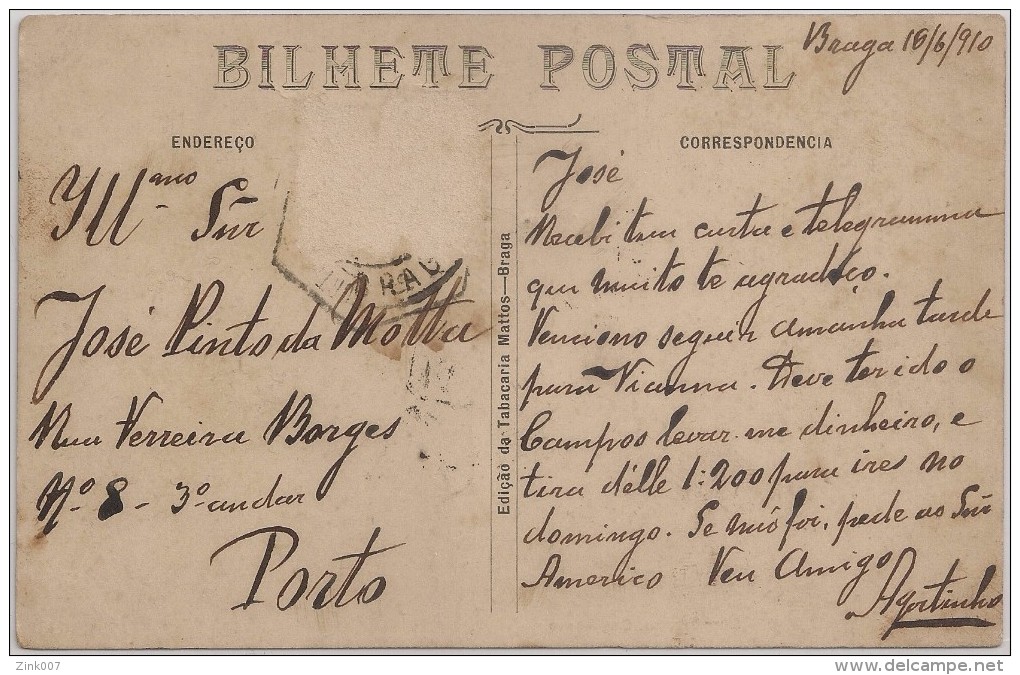 BILHETE POSTAL
Braga 16/6/910
ENDEREÇO
Illᵐᵒ Snr
José Pinto da Motta
Rua Ferreira Borges
Nº 8 - 3º andar
Porto
Edição da Tabacaria Mattos—Braga
CORRESPONDENCIA
José
Recebi tua carta e telegramma
que muito te agradeço.
Tenciono seguir amanha tarde
para Vianna. Deve ter ido o
Campos levar-me dinheiro, e
tira d'elle 1:200 para ires no
domingo. Se não foi, pede ao Snr
Americo Teu Amigo
Agostinho
Zink007
delcampe.net